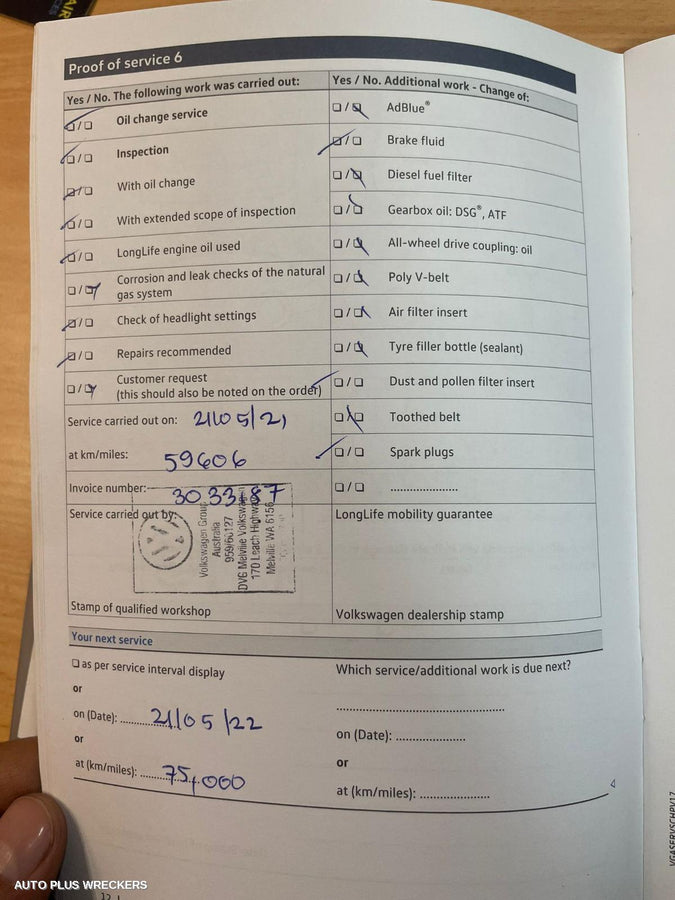 Proof of service 6
Yes / No. The following work was carried out:
☐/☐ Oil change service
☐/☐ Inspection
☐/☐ With oil change
☐/☐ With extended scope of inspection
☐/☐ LongLife engine oil used
☐/☐ Corrosion and leak checks of the natural
gas system
☐/☐ Check of headlight settings
☐/☐ Repairs recommended
☐/☐ Customer request
(this should also be noted on the order)
Service carried out on: 21/05/21
at km/miles: 59606
Invoice number: 303387
Service carried out by:
Volkswagen Group
Australia
959/60127
DVG Melville Volkswagen
170 Leach Highway
Melville WA 6156
Stamp of qualified workshop
Yes / No. Additional work - Change of:
☐/☐ AdBlue®
☐/☐ Brake fluid
☐/☐ Diesel fuel filter
☐/☐ Gearbox oil: DSG®, ATF
☐/☐ All-wheel drive coupling: oil
☐/☐ Poly V-belt
☐/☐ Air filter insert
☐/☐ Tyre filler bottle (sealant)
☐/☐ Dust and pollen filter insert
☐/☐ Toothed belt
☐/☐ Spark plugs
☐/☐ ....................
LongLife mobility guarantee
Volkswagen dealership stamp
Your next service
☐ as per service interval display
or
on (Date): 21/05/22
or
at (km/miles): 75,000
Which service/additional work is due next?
..................................................
on (Date): ....................
or
at (km/miles): ....................
AUTO PLUS WRECKERS